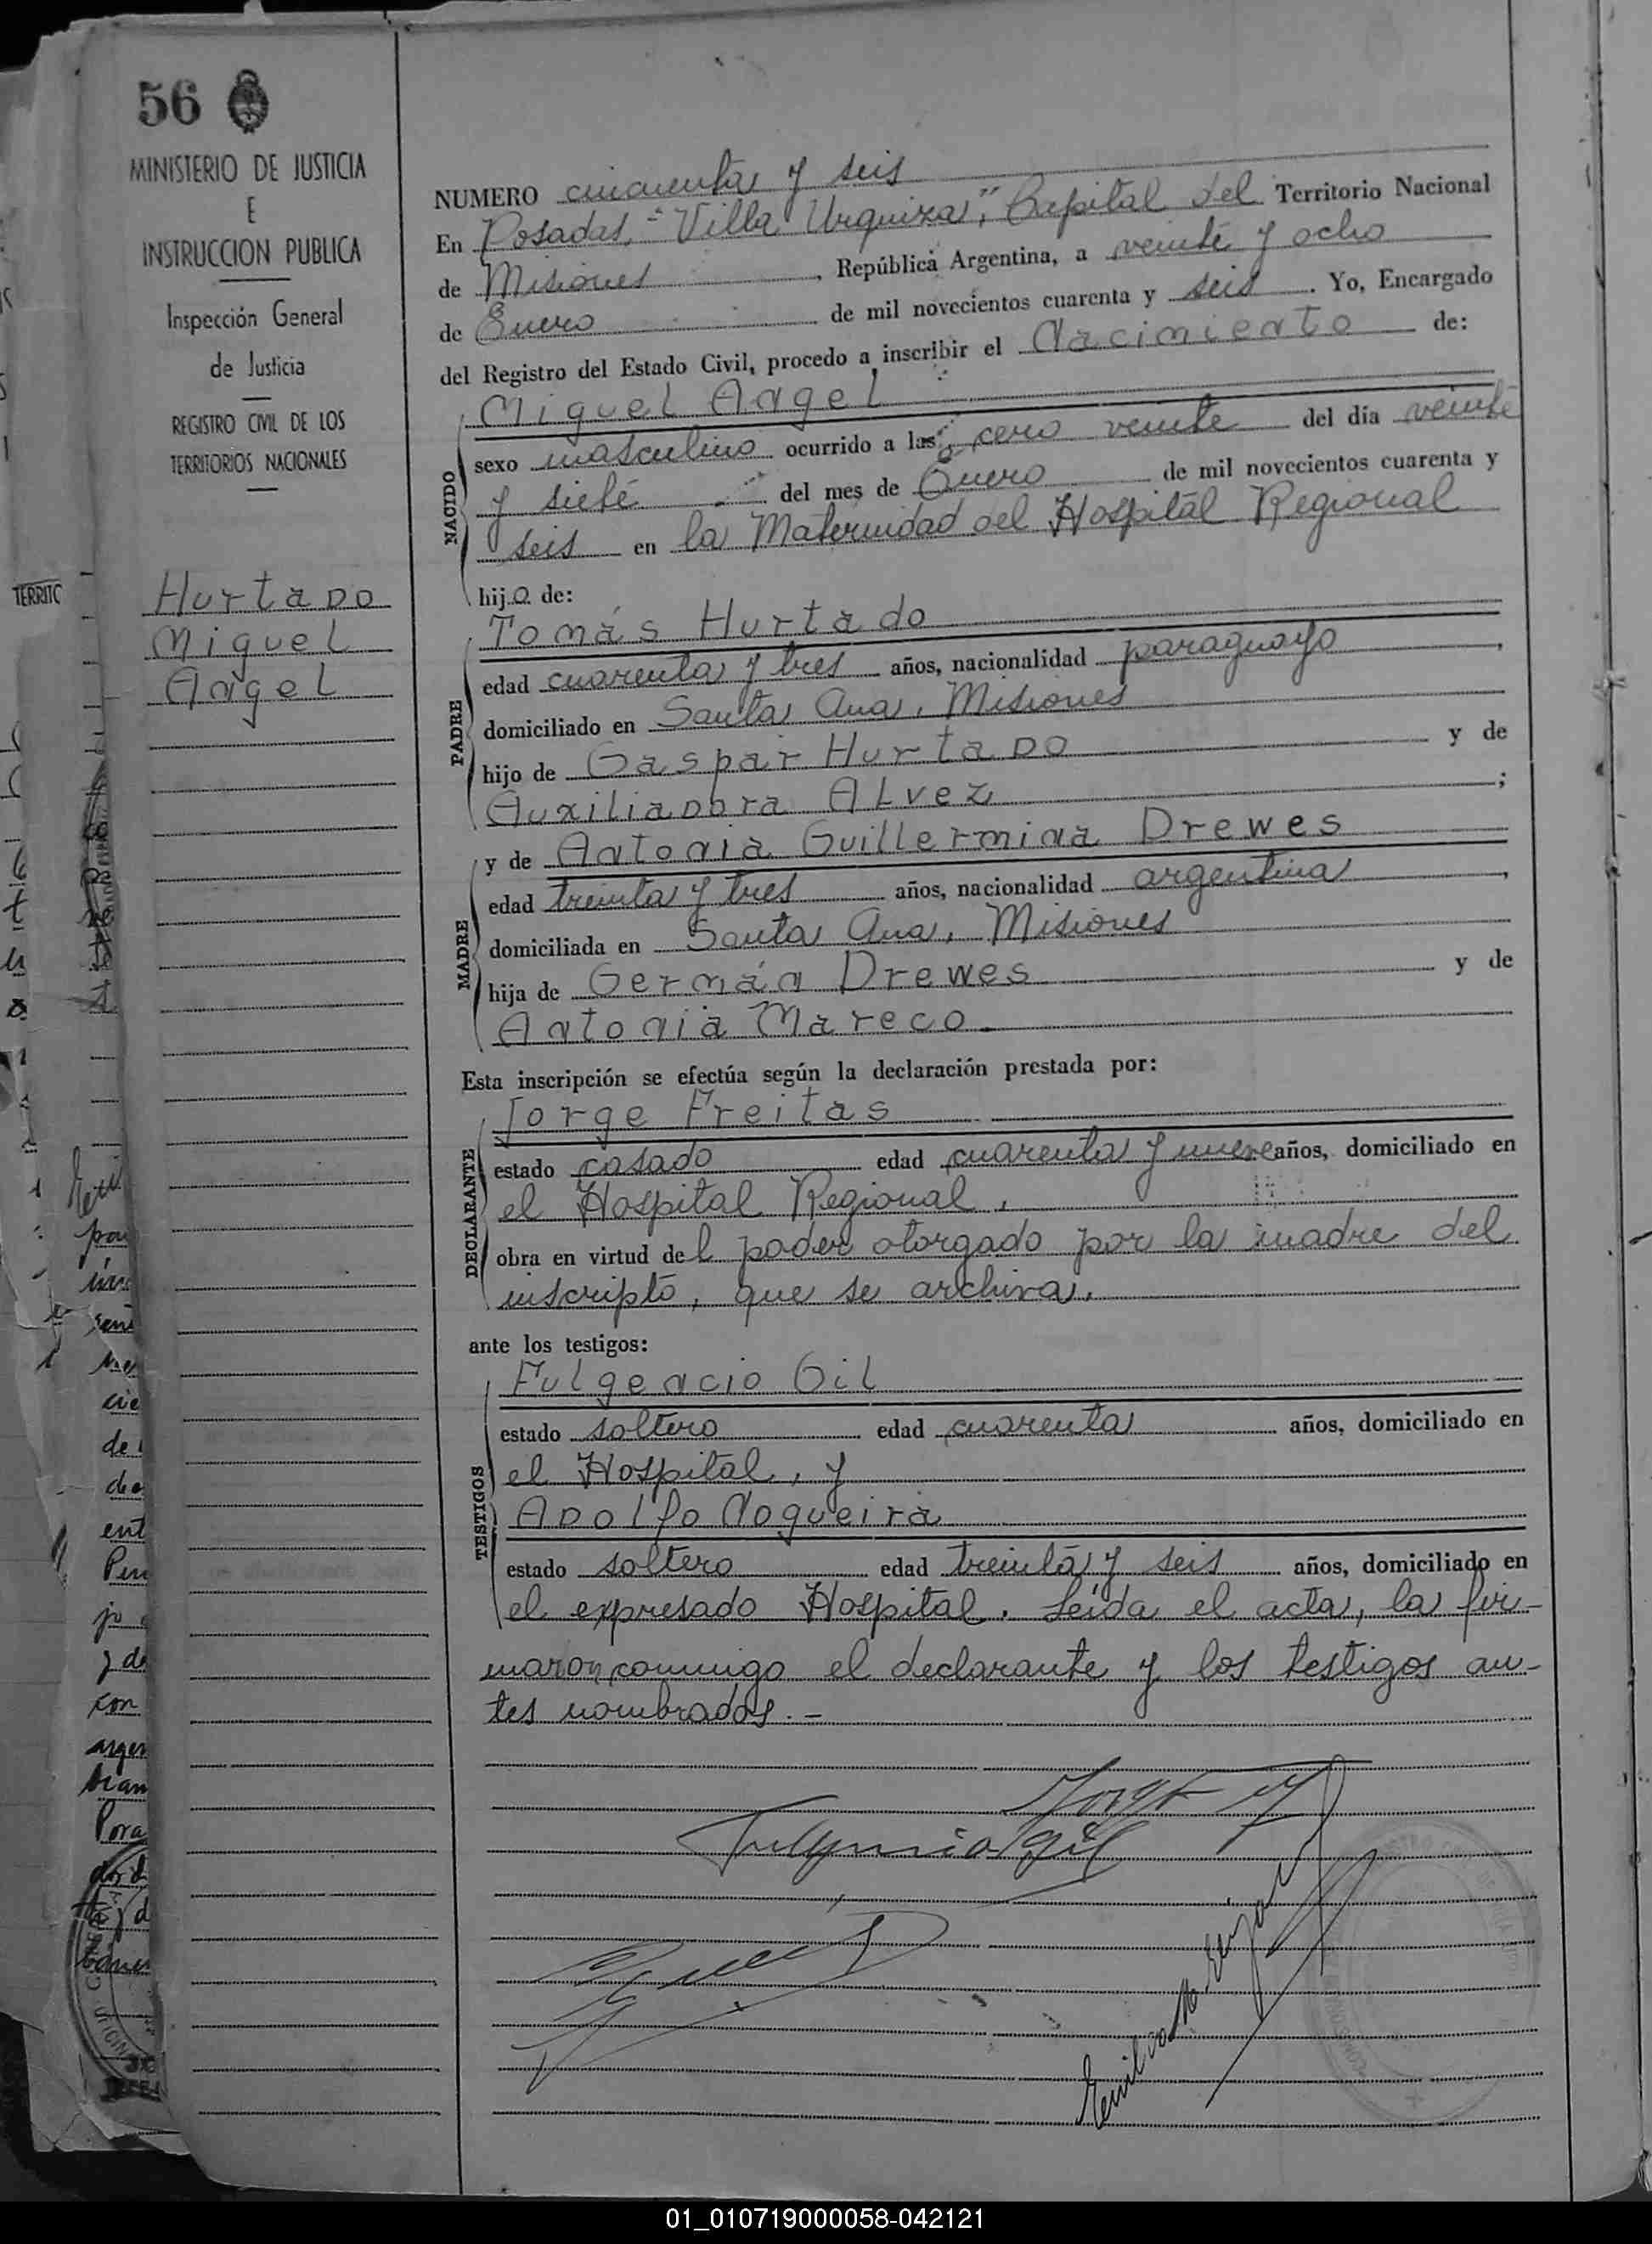 56
MINISTERIO DE JUSTICIA
E
INSTRUCCION PUBLICA
Inspección General
de Justicia
REGISTRO CIVIL DE LOS
TERRITORIOS NACIONALES
Hurtado
Miguel
Angel
NUMERO cincuenta y seis
En Posadas, "Villa Urquiza", Capital del Territorio Nacional
de Misiones, República Argentina, a veinte y ocho
de Enero de mil novecientos cuarenta y seis. Yo, Encargado
del Registro del Estado Civil, procedo a inscribir el Nacimiento de:
NACIDO
Miguel Angel
sexo masculino ocurrido a las cero veinte del día veinte
y siete del mes de Enero de mil novecientos cuarenta y
seis en la Maternidad del Hospital Regional
hijo de:
PADRE
Tomás Hurtado
edad cuarenta y tres años, nacionalidad paraguayo,
domiciliado en Santa Ana, Misiones
hijo de Gaspar Hurtado y de
Auxiliadora Alvez;
MADRE
y de Antonia Guillermina Drewes
edad treinta y tres años, nacionalidad argentina,
domiciliada en Santa Ana, Misiones
hija de Germán Drewes y de
Antonia Mareco.
Esta inscripción se efectúa según la declaración prestada por:
DECLARANTE
Jorge Freitas
estado casado edad cuarenta y nueve años, domiciliado en
el Hospital Regional,
obra en virtud del poder otorgado por la madre del
inscripto, que se archiva.
ante los testigos:
TESTIGOS
Fulgencio Gil
estado soltero edad cuarenta años, domiciliado en
el Hospital, y
Adolfo Nogueira
estado soltero edad treinta y seis años, domiciliado en
el expresado Hospital. Leída el acta, la fir-
maron conmigo el declarante y los testigos an-
tes nombrados.-
Fulgencio Gil
01_010719000058-042121